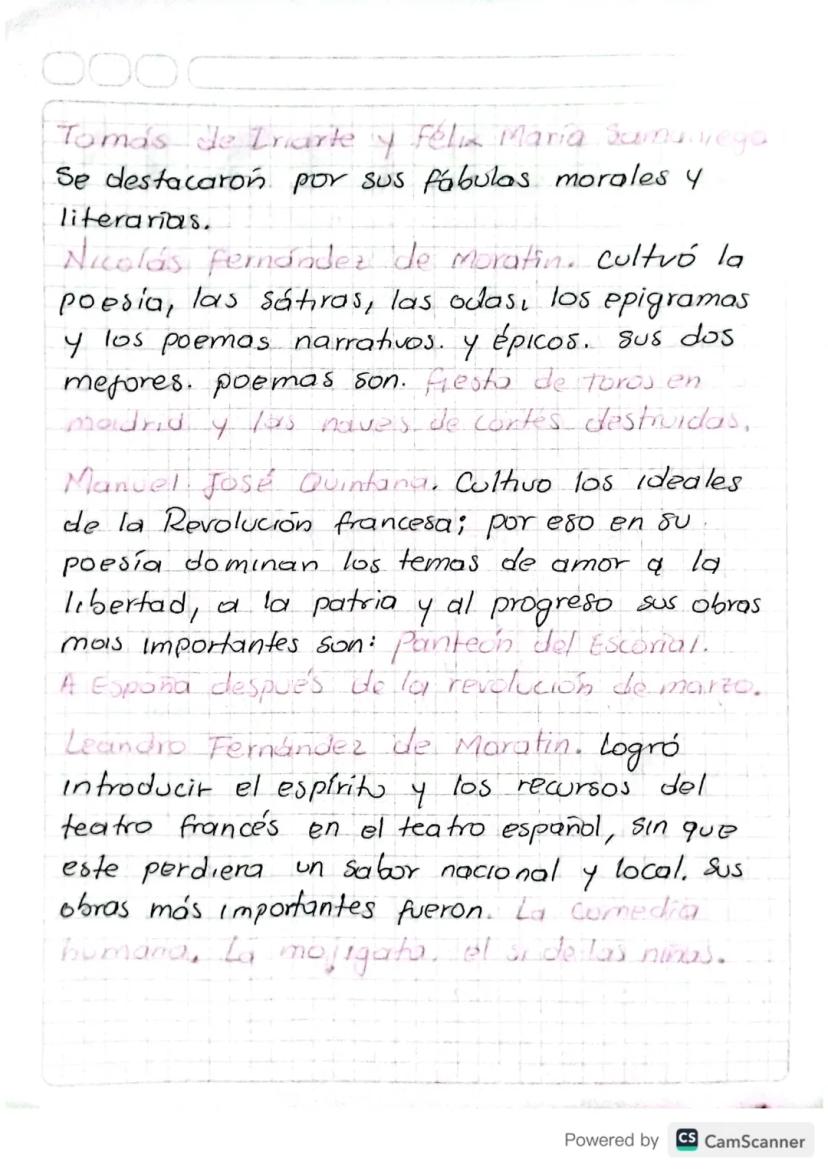 Tomás de Iriarte y Félix María Samaniego
Se destacaron por sus fábulas morales y
literarias.
Nicolás Fernández de Moratin. Cultvó la
poesía, las sátiras, las odas, los epigramas
y los poemas narrativos. y épicos. sus dos
mejores. poemas son. fiesta de toros en
madrid y las naves de cortés destruidas.
Manuel José Quintana. Cultivo los ideales
de la Revolución francesa; por eso en su
poesía dominan los temas de amor a la
libertad, a la patria y al progreso sus obras
mas importantes son: Panteón del Escorial.
A España después de la revolución de marzo.
Leandro Fernández de Moratin. Logró
introducir el espíritu y los recursos del
teatro francés en el teatro español, sin que
este perdiera un sabor nacional y local. Sus
obras más importantes fueron. La comedia
humana. La mojigata. el si de las niñas.
Powered by CS CamScanner